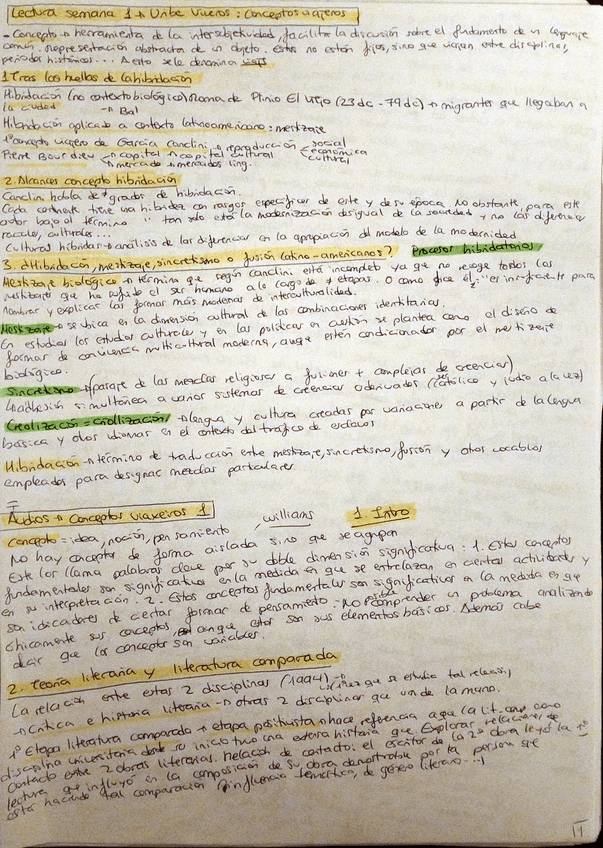 Lectura semana 1 → Uribe Viveros: conceptos viajeros
- Concepto → herramienta de la intersubjetividad, facilita la discusión sobre el fundamento de un lenguaje
común. representación abstracta de un objeto. Estos no están fijos, sino que viajan entre disciplinas,
periodos históricos... A esto se le denomina viaje
1. Tras las huellas de la hibridación
Hibridación (no contexto biológico) Roma de Plinio El Viejo (23 dc - 79 dc) → migrantes que llegaban a
la ciudad
Hibridación aplicado a contexto latinoamericano: mestizaje
1º concepto viajero de García Canclini → reproducción social
económica
cultural
Pierre Bourdieu → capital → capital cultural
→ mercado → mercados ling.
2. Alcances concepto hibridación
Canclini habla de ≠ grados de hibridación.
Cada continente tiene una hibridez con rasgos específicos de este y de su época. No obstante, para este
autor bajo el término " tan solo está la modernización desigual de la sociedad y no las diferencias
raciales, culturales...
Culturas híbridas → análisis de las diferencias en la apropiación del modelo de la modernidad
3. ¿Hibridación, mestizaje, sincretismo o fusión latino-americanos? Procesos hibridatorios
Mestizaje biológico → término que según Canclini está incompleto ya que no recoge todos los
mestizajes que ha sufrido el ser humano a lo largo de ≠ etapas. O como dice él: "es insuficiente para
nombrar y explicar las formas más modernas de interculturalidad.
Mestizaje → se ubica en la dimensión cultural de las combinaciones identitarias.
En estudios los estudios culturales y en las políticas en cuestión se plantea como el diseño de
formas de convivencia multicultural moderna, aunque estén condicionados por el mestizaje
biológico.
Sincretismo → paraje de las mezclas religiosas a fusiones + complejas de creencias)
adhesión simultánea a varios sistemas de creencias o derivados (ser católico y judío a la vez)
Creolización = criollización → lengua y cultura creadas por variaciones a partir de la lengua
básica y otros idiomas en el contexto del tráfico de esclavos
Hibridación → término de traducción entre mestizaje, sincretismo, fusión y otros vocablos
empleados para designar mezclas particulares
Audios → Conceptos viaxeiros 1
1. Intro
concepto = idea, noción, pensamiento
Williams
No hay conceptos de forma aislada sino que se agrupan
Este los llama palabras clave por su doble dimensión significativa: 1. Estos conceptos
fundamentales son significativos en la medida en que se entrelazan en ciertas actividades y
en su interpretación. 2. Estos conceptos fundamentales son significativos en la medida en que
son indicadores de ciertas formas de pensamiento. No posible comprender un problema analizando
únicamente sus conceptos, aunque estos son sus elementos básicos. Además cabe
decir que los conceptos son variables.
2. Teoría literaria y literatura comparada
La relación entre estas 2 disciplinas (1994) → 1ª vez que se estudia tal relación
→ Crítica e historia literaria → otras 2 disciplinas que van de la mano.
1º Etapa literatura comparada → etapa positivista → hace referencia a que la lit. comp como
disciplina universitaria desde su inicio tuvo una extensa historia que explorar relaciones de
contacto entre 2 obras literarias. Relación de contacto: el escritor de la 2º obra leyó la 1º
lectura que influyó en la composición de su obra demostrable por la persona que
está haciendo tal comparación (influencia temática, de género literario...)